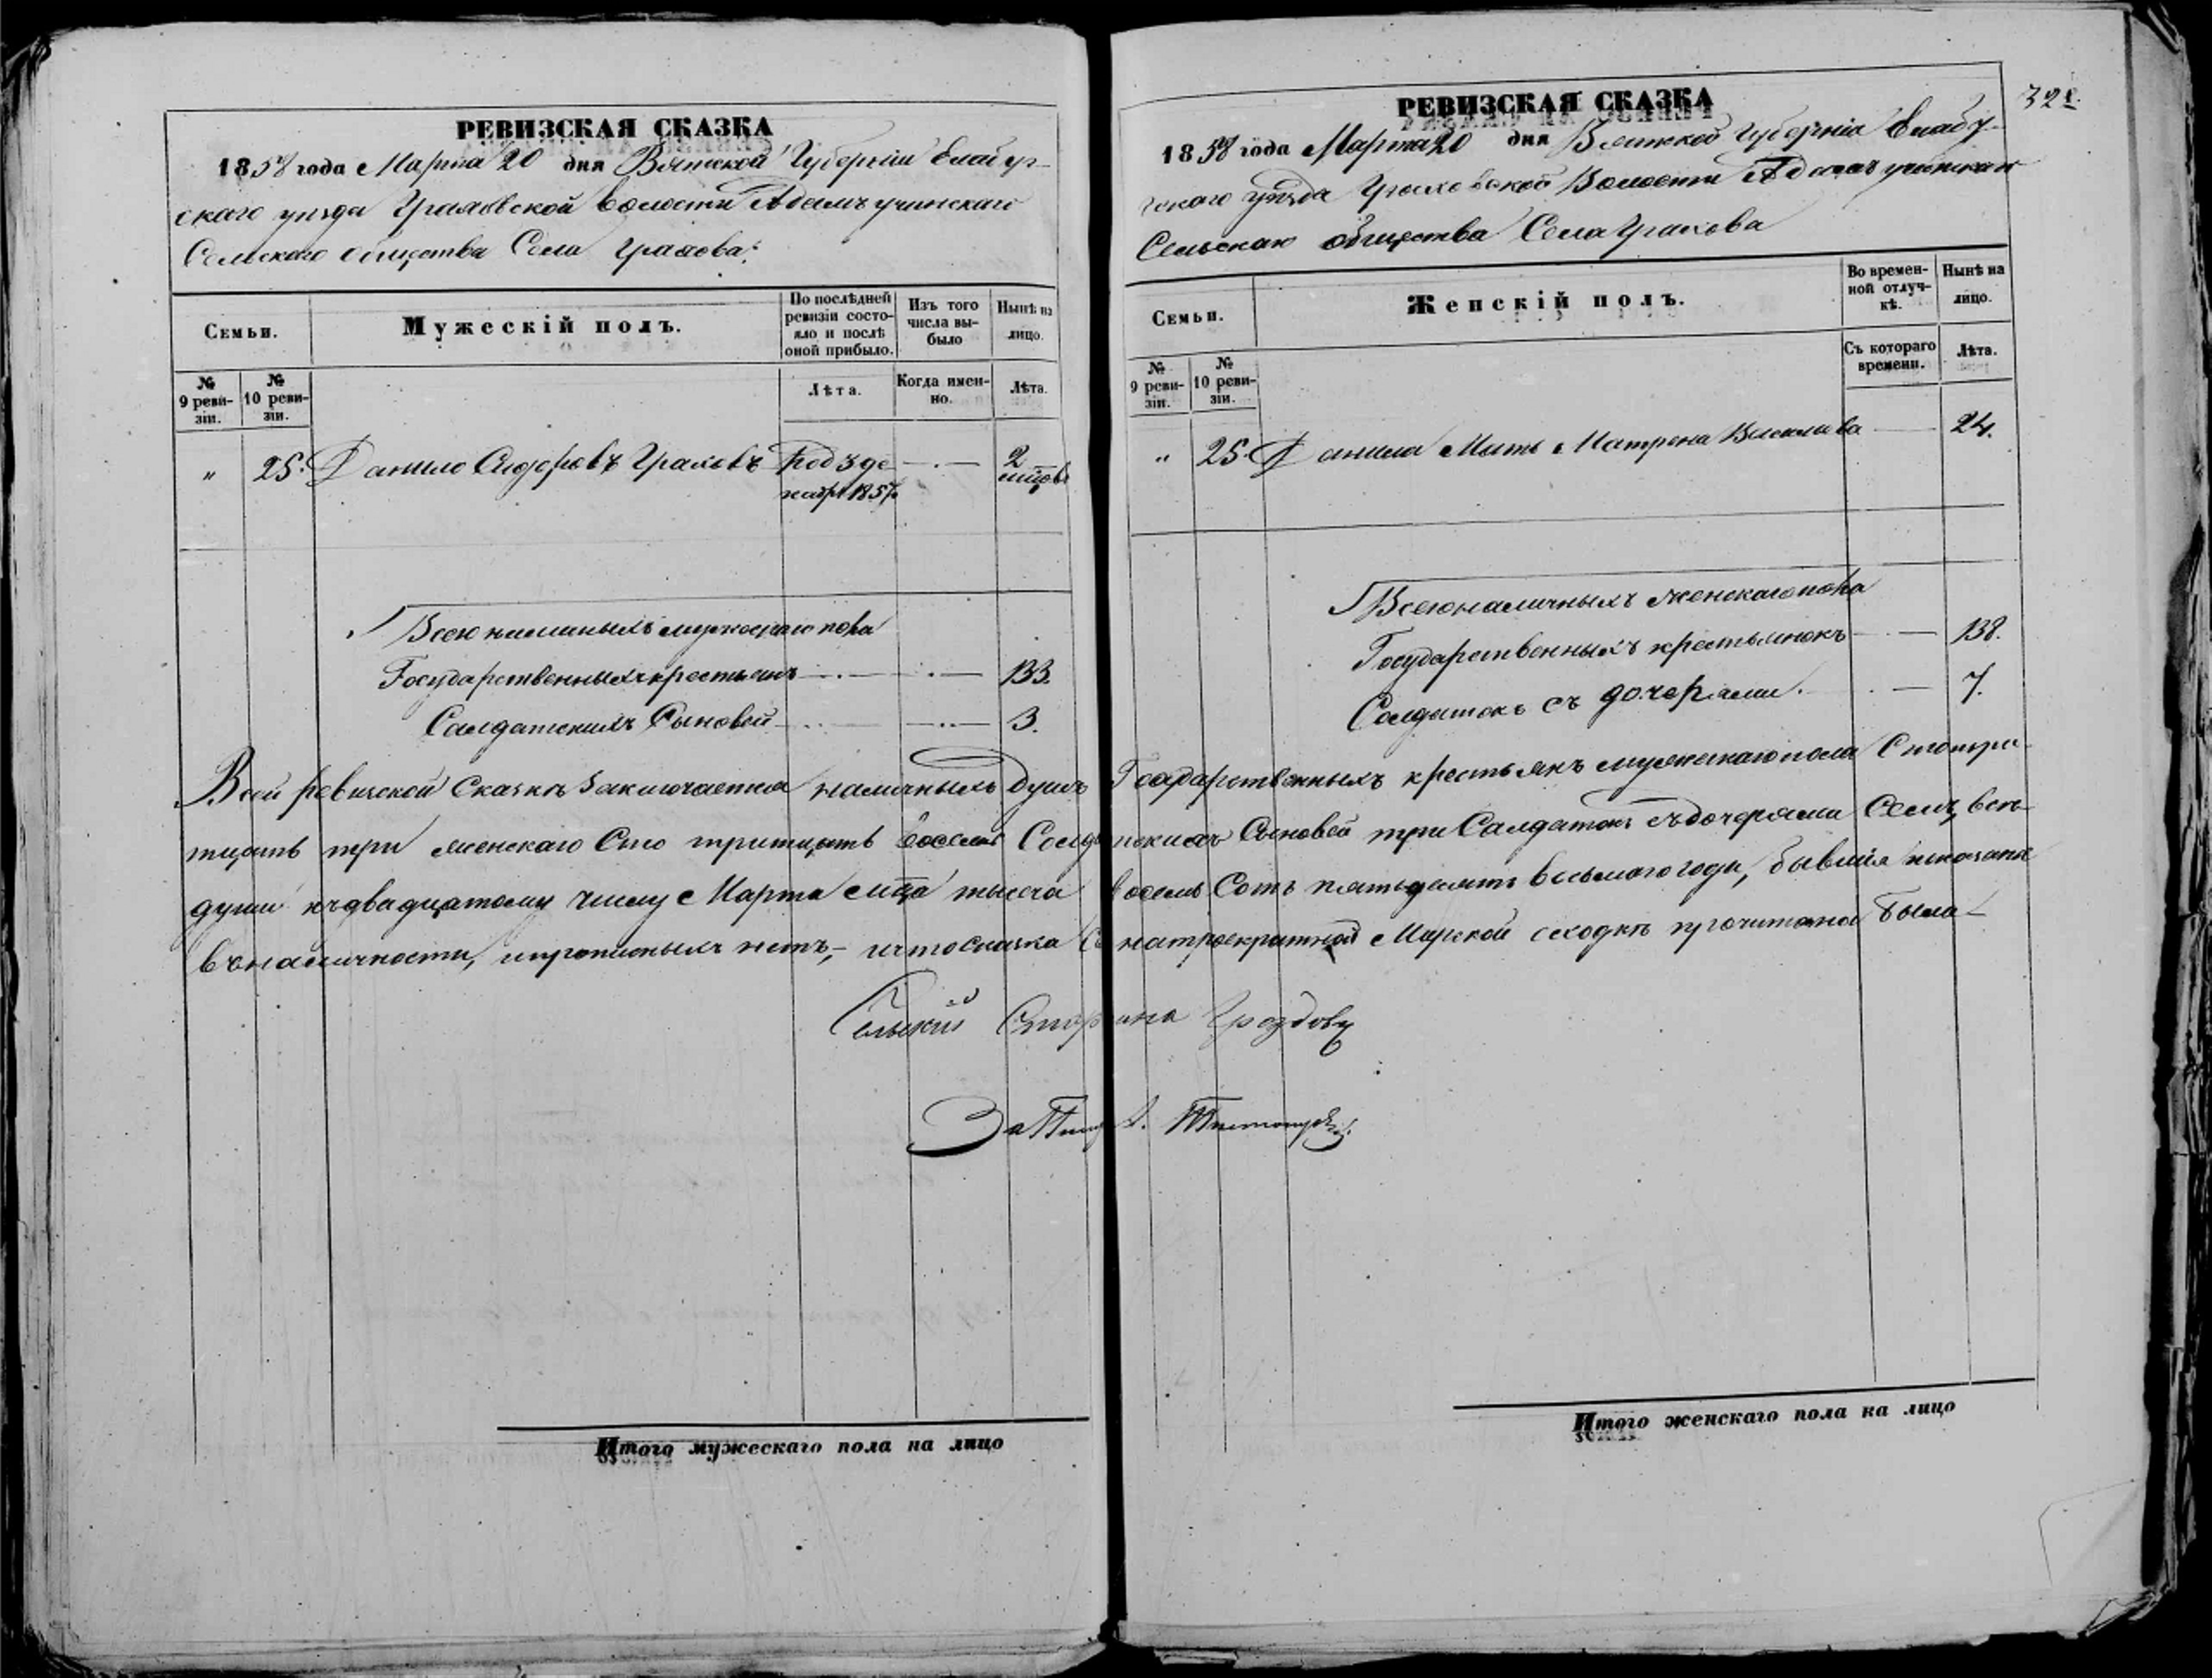 РЕВИЗСКАЯ СКАЗКА
1858 года Марта 20 дня Вятской Губерніи Елабуж-
скаго уезда Граховской волости Адамъ учинскаго
Сельскаго общества Села Грахова.
Семьи.
Мужескій полъ.
По послѣдней ревизіи состо-яло и послѣ оной прибыло.
Изъ того числа вы-было
Нынѣ на лицо.
№ 9 реви-зіи.
№ 10 реви-зіи.
Лѣта.
Когда имен-но.
Лѣта.
" 25. Данило Сидоровъ Граховъ 2
1857
Всего наличныхъ мужескаго пола
Государственныхъ крестьянъ 133.
Салдатскихъ Сыновей 3.
РЕВИЗСКАЯ СКАЗКА
32
1858 года Марта 20 дня Вятской Губерніи Елабу-
скаго уѣзда Граховской Волости Адамъ учинскаго
Сельскаго общества Села Грахова
Семьи.
Женскій полъ.
Во времен-ной отлуч-кѣ.
Нынѣ на лицо.
№ 9 реви-зіи.
№ 10 реви-зіи.
Съ котораго времени.
Лѣта.
" 25. Данила Мать Матрена Васильева 24.
Всего наличныхъ женскаго пола
Государственныхъ крестьянокъ 138.
Солдатокъ съ дочерями. 7.
Всей ревизской Сказкѣ Заключается наличныхъ душъ Государственныхъ крестьянъ мужескаго пола Сто три-
тцать три женскаго Сто тритцать восемь Солдатскихъ Сыновей три Салдатокъ съ дочерями Семь, все
души къ двадцатому числу Марта мца тысеча восемь Сотъ пятьдесятъ восьмаго года, бывшія показаны
въ наличности, и прописныхъ нетъ, - и что Сказка Сія на троекратной Мирской сходкѣ прочитана была
Сельский Старшина Гроздовъ
За
Итого мужескаго пола на лицо
Итого женскаго пола на лицо